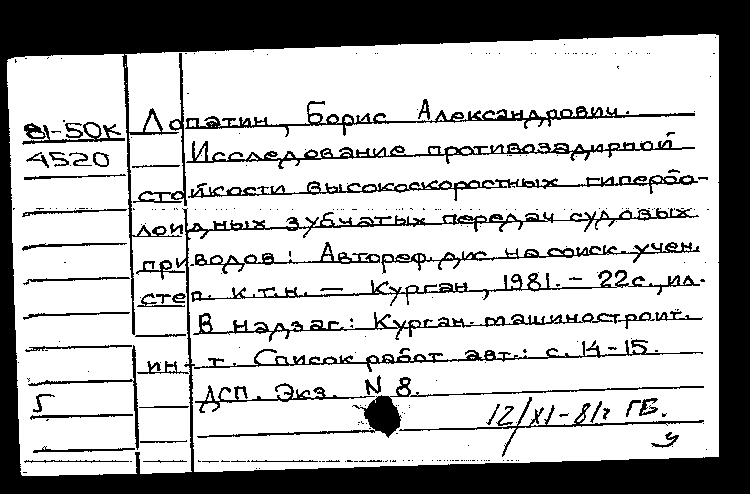 81-50К Лопатин, Борис Александрович.
4520 Исследование противозадирной
стойкости высокоскоростных гипербо-
лоидных зубчатых передач судовых
приводов: Автореф. дис. на соиск. учен.
степ. к.т.н. — Курган, 1981. — 22с., ил.
В надзаг.: Курган. машиностроит.
ин-т. Список работ авт.: с. 14-15.
ДСП. Экз. N 8.
12/XI-81г ГБ.